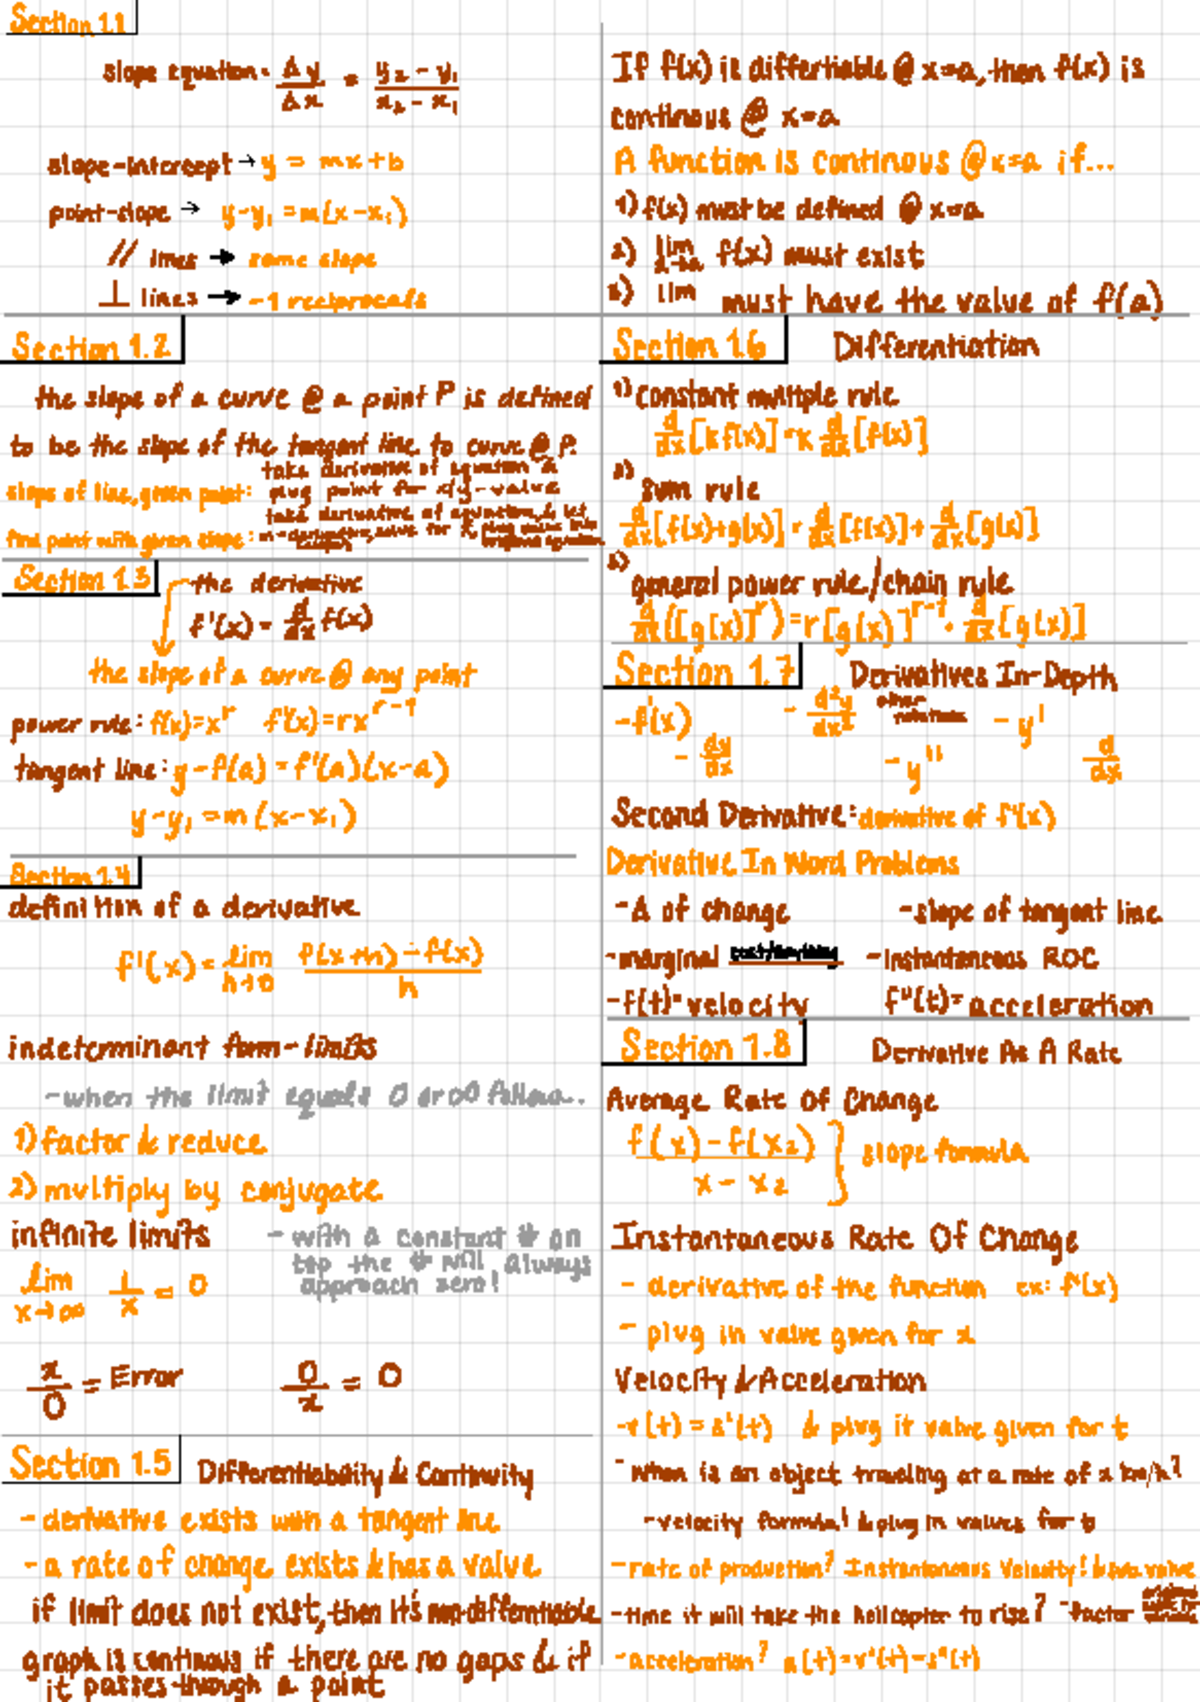 Section 1.1
slope equation = Δy/Δx = (y₂ - y₁)/(x₂ - x₁)
slope-intercept → y = mx+b
point-slope → y-y₁ = m(x-x₁)
// lines → same slope
⊥ lines → -1 reciprocals
Section 1.2
the slope of a curve @ a point P is defined
to be the slope of the tangent line to curve @ P.
slope of line, given point: take derivative of equation &
plug point for x/y-value
find point with given slope: take derivative of equation, & let
m = derivative, solve for x,
Section 1.3
the derivative
f'(x) = d/dx f(x)
the slope of a curve @ any point
power rule: f(x)=x^r f'(x)=rx^(r-1)
tangent line: y-f(a) = f'(a)(x-a)
y-y₁ = m(x-x₁)
Section 1.4
definition of a derivative
f'(x) = lim h→0 (f(x+h) - f(x))/h
indeterminant form-limits
-when the limit equals 0 or ∞ follow..
1) factor & reduce
2) multiply by conjugate
infinite limits
- with a constant # on
top the # will always
approach zero!
lim x→∞ 1/x = 0
x/0 = Error 0/x = 0
Section 1.5 Differentiability & Continuity
- derivative exists when a tangent line
- a rate of change exists & has a value
if limit does not exist, then it's non-differntiable
graph is continous if there are no gaps & if
it passes through a point
If f(x) is differtiable @ x=a, then f(x) is
continous @ x=a
A function is continous @ x=a if...
1) f(x) must be defined @ x=a
2) lim x→a f(x) must exist
3) lim must have the value of f(a)
Section 1.6 Differentiation
1) constant multiple rule
d/dx [kf(x)] = k d/dx [f(x)]
2) sum rule
d/dx [f(x)+g(x)] = d/dx [f(x)] + d/dx [g(x)]
3) general power rule/chain rule
d/dx ([g(x)]^r) = r[g(x)]^(r-1) · d/dx [g(x)]
Section 1.7 Derivatives In-Depth
-f'(x) - d²y/dx² other notations - y'
- dy/dx - y'' d/dx
Second Derivative: derivative of f'(x)
Derivative In Word Problems
-Δ of change -slope of tangent line
-marginal -instantaneous ROC
-f'(t)=velocity f''(t)=acceleration
Section 1.8 Derivative As A Rate
Average Rate Of Change
(f(x) - f(x₂))/(x - x₂) } slope formula
Instantaneous Rate Of Change
- derivative of the function ex: f'(x)
- plug in value given for x
Velocity & Acceleration
-v(t) = s'(t) & plug it value given for t
-when is an object traveling at a rate of x km/h?
-velocity formula! & plug in values for t
-rate of production? Instantanous Velocity! & value
-time it will take the helicopter to rise? -factor
-acceleration? a(t)=v'(t)=s''(t)